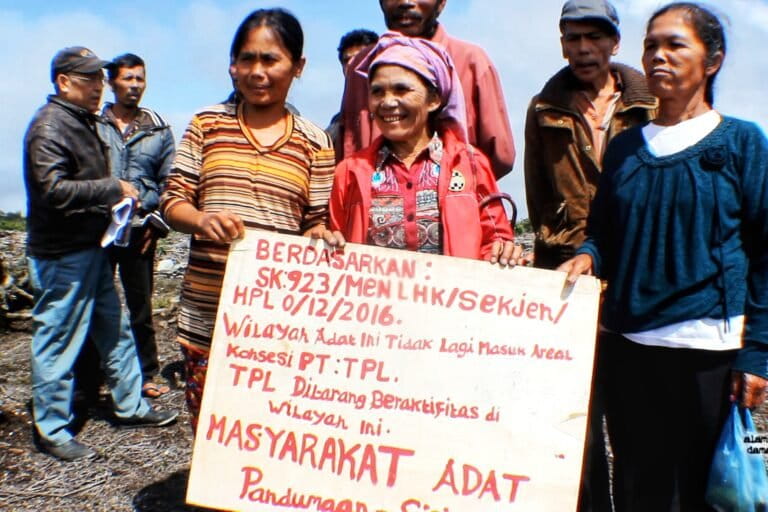 BERDASARKAN :
SK:923/MENLHK/SEKJEN/
HPL 0/12/2016.
Wilayah Adat Ini Tidak Lagi Masuk Areal
Konsesi PT:TPL.
TPL Dilarang Beraktifitas di
Wilayah Ini.
MASYARAKAT ADAT
Pandumaan -
alam
dama